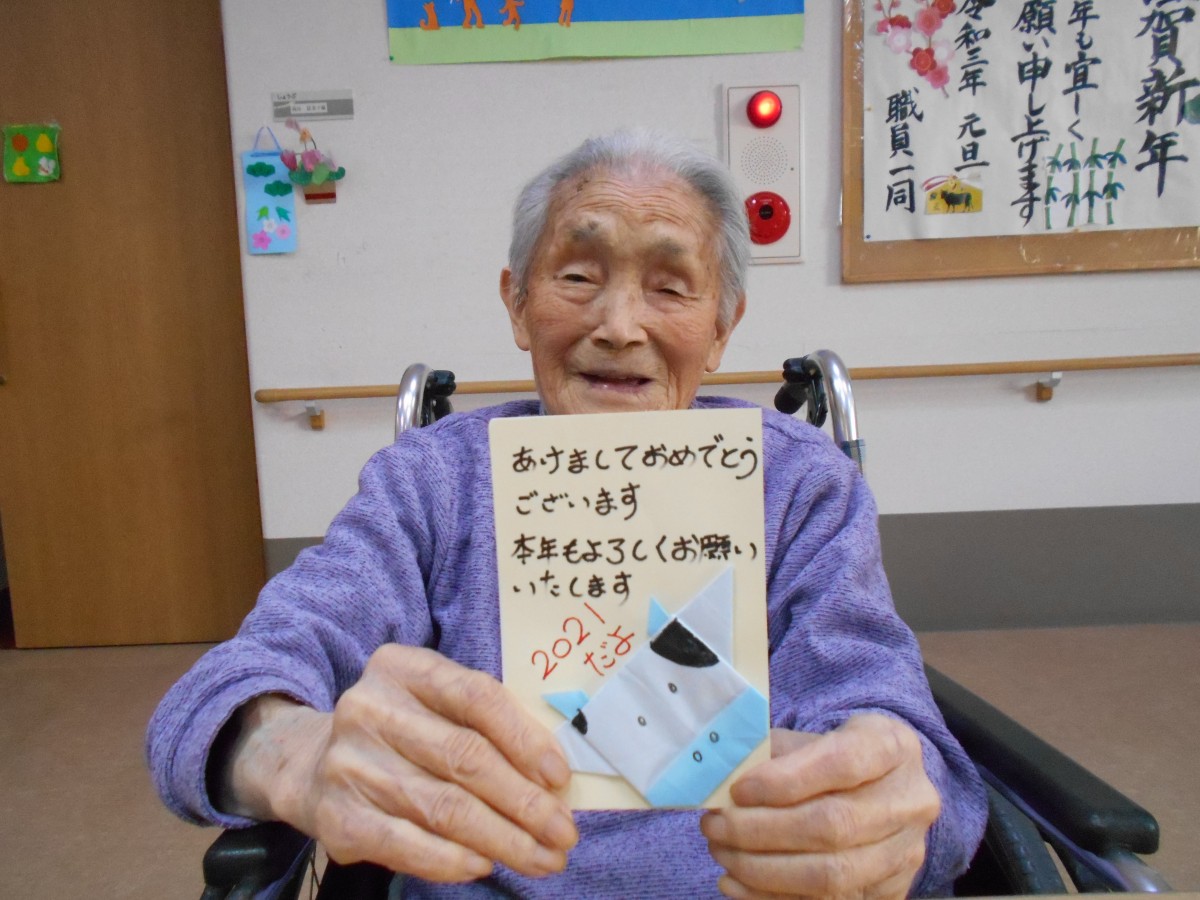 賀新年
年も宜しく
願い申し上げます
令和三年 元旦
職員一同
あけましておめでとう
ございます
本年もよろしくお願い
いたします
2021
だよ